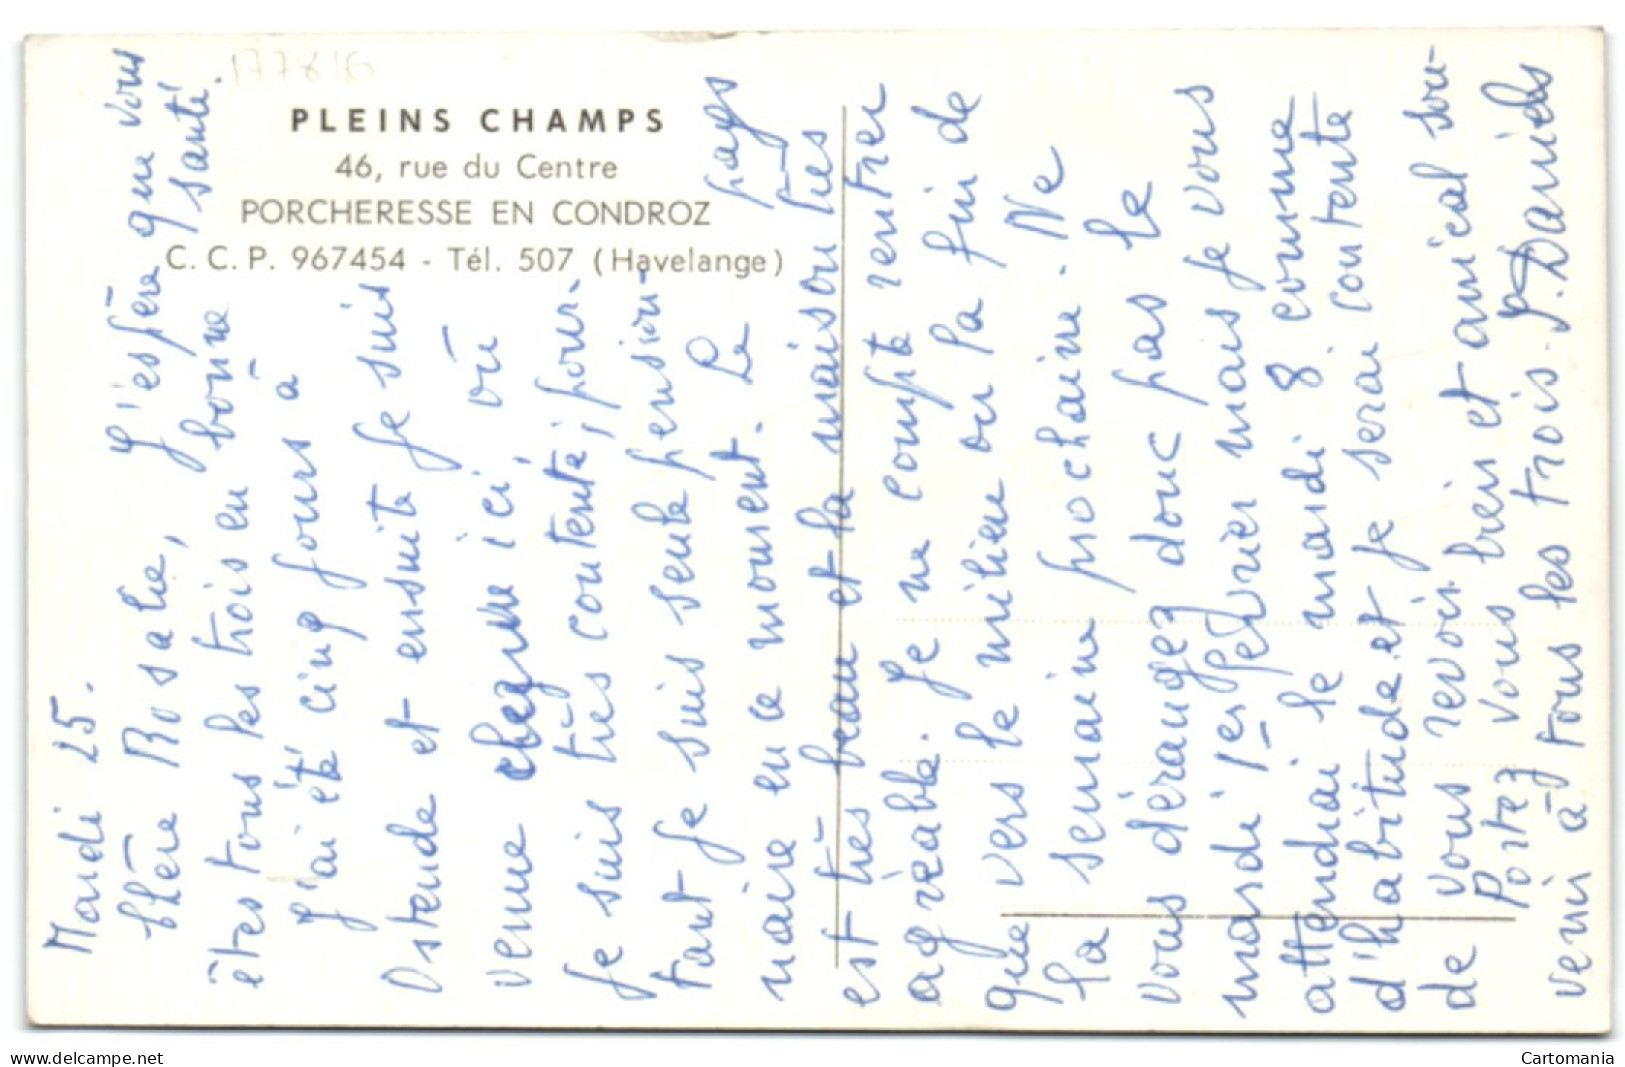 177816
PLEINS CHAMPS
46, rue du Centre
PORCHERESSE EN CONDROZ
C. C. P. 967454 - Tél. 507 (Havelange)
Mardi 25.
Chère Rosalie, J'espère que vous
êtes tous les trois en bonne santé.
J'ai été cinq jours à
Ostende et ensuite je suis
venue ici, où
je suis très contente; pour-
tant je suis seule pension-
naire en ce moment. Le pays
est très beau et la maison très
agréable. Je ne compte rentrer
que vers le milieu ou la fin de
la semaine prochaine. Ne
vous dérangez donc pas le
mardi 1er février mais je vous
attendrai le mardi 8 comme
d'habitude et je serai contente
de vous revoir.
Portez vous bien et amical sou-
venir à tous les trois. J. Daniels
delcampe.net
Cartomania